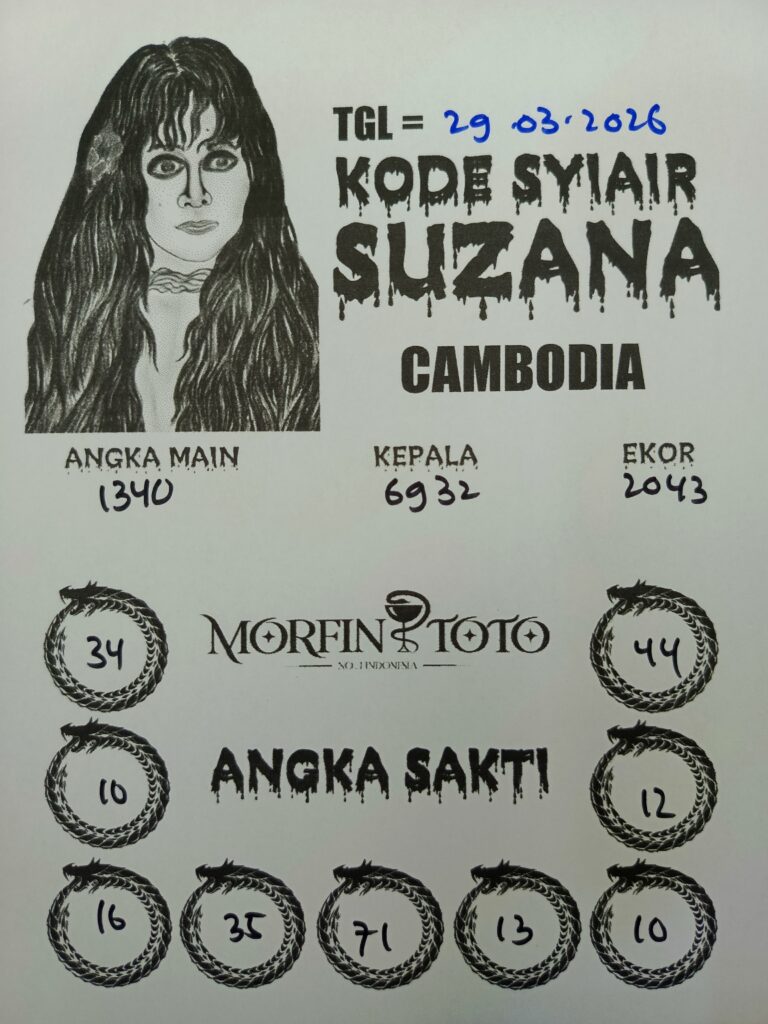 TGL = 29.03.2026
KODE SYIAIR
SUZANA
CAMBODIA
ANGKA MAIN KEPALA EKOR
1340 6932 2043
MORFIN TOTO
NO.1 INDONINIA
34 44
ANGKA SAKTI
10 12
16 35 71 13 10